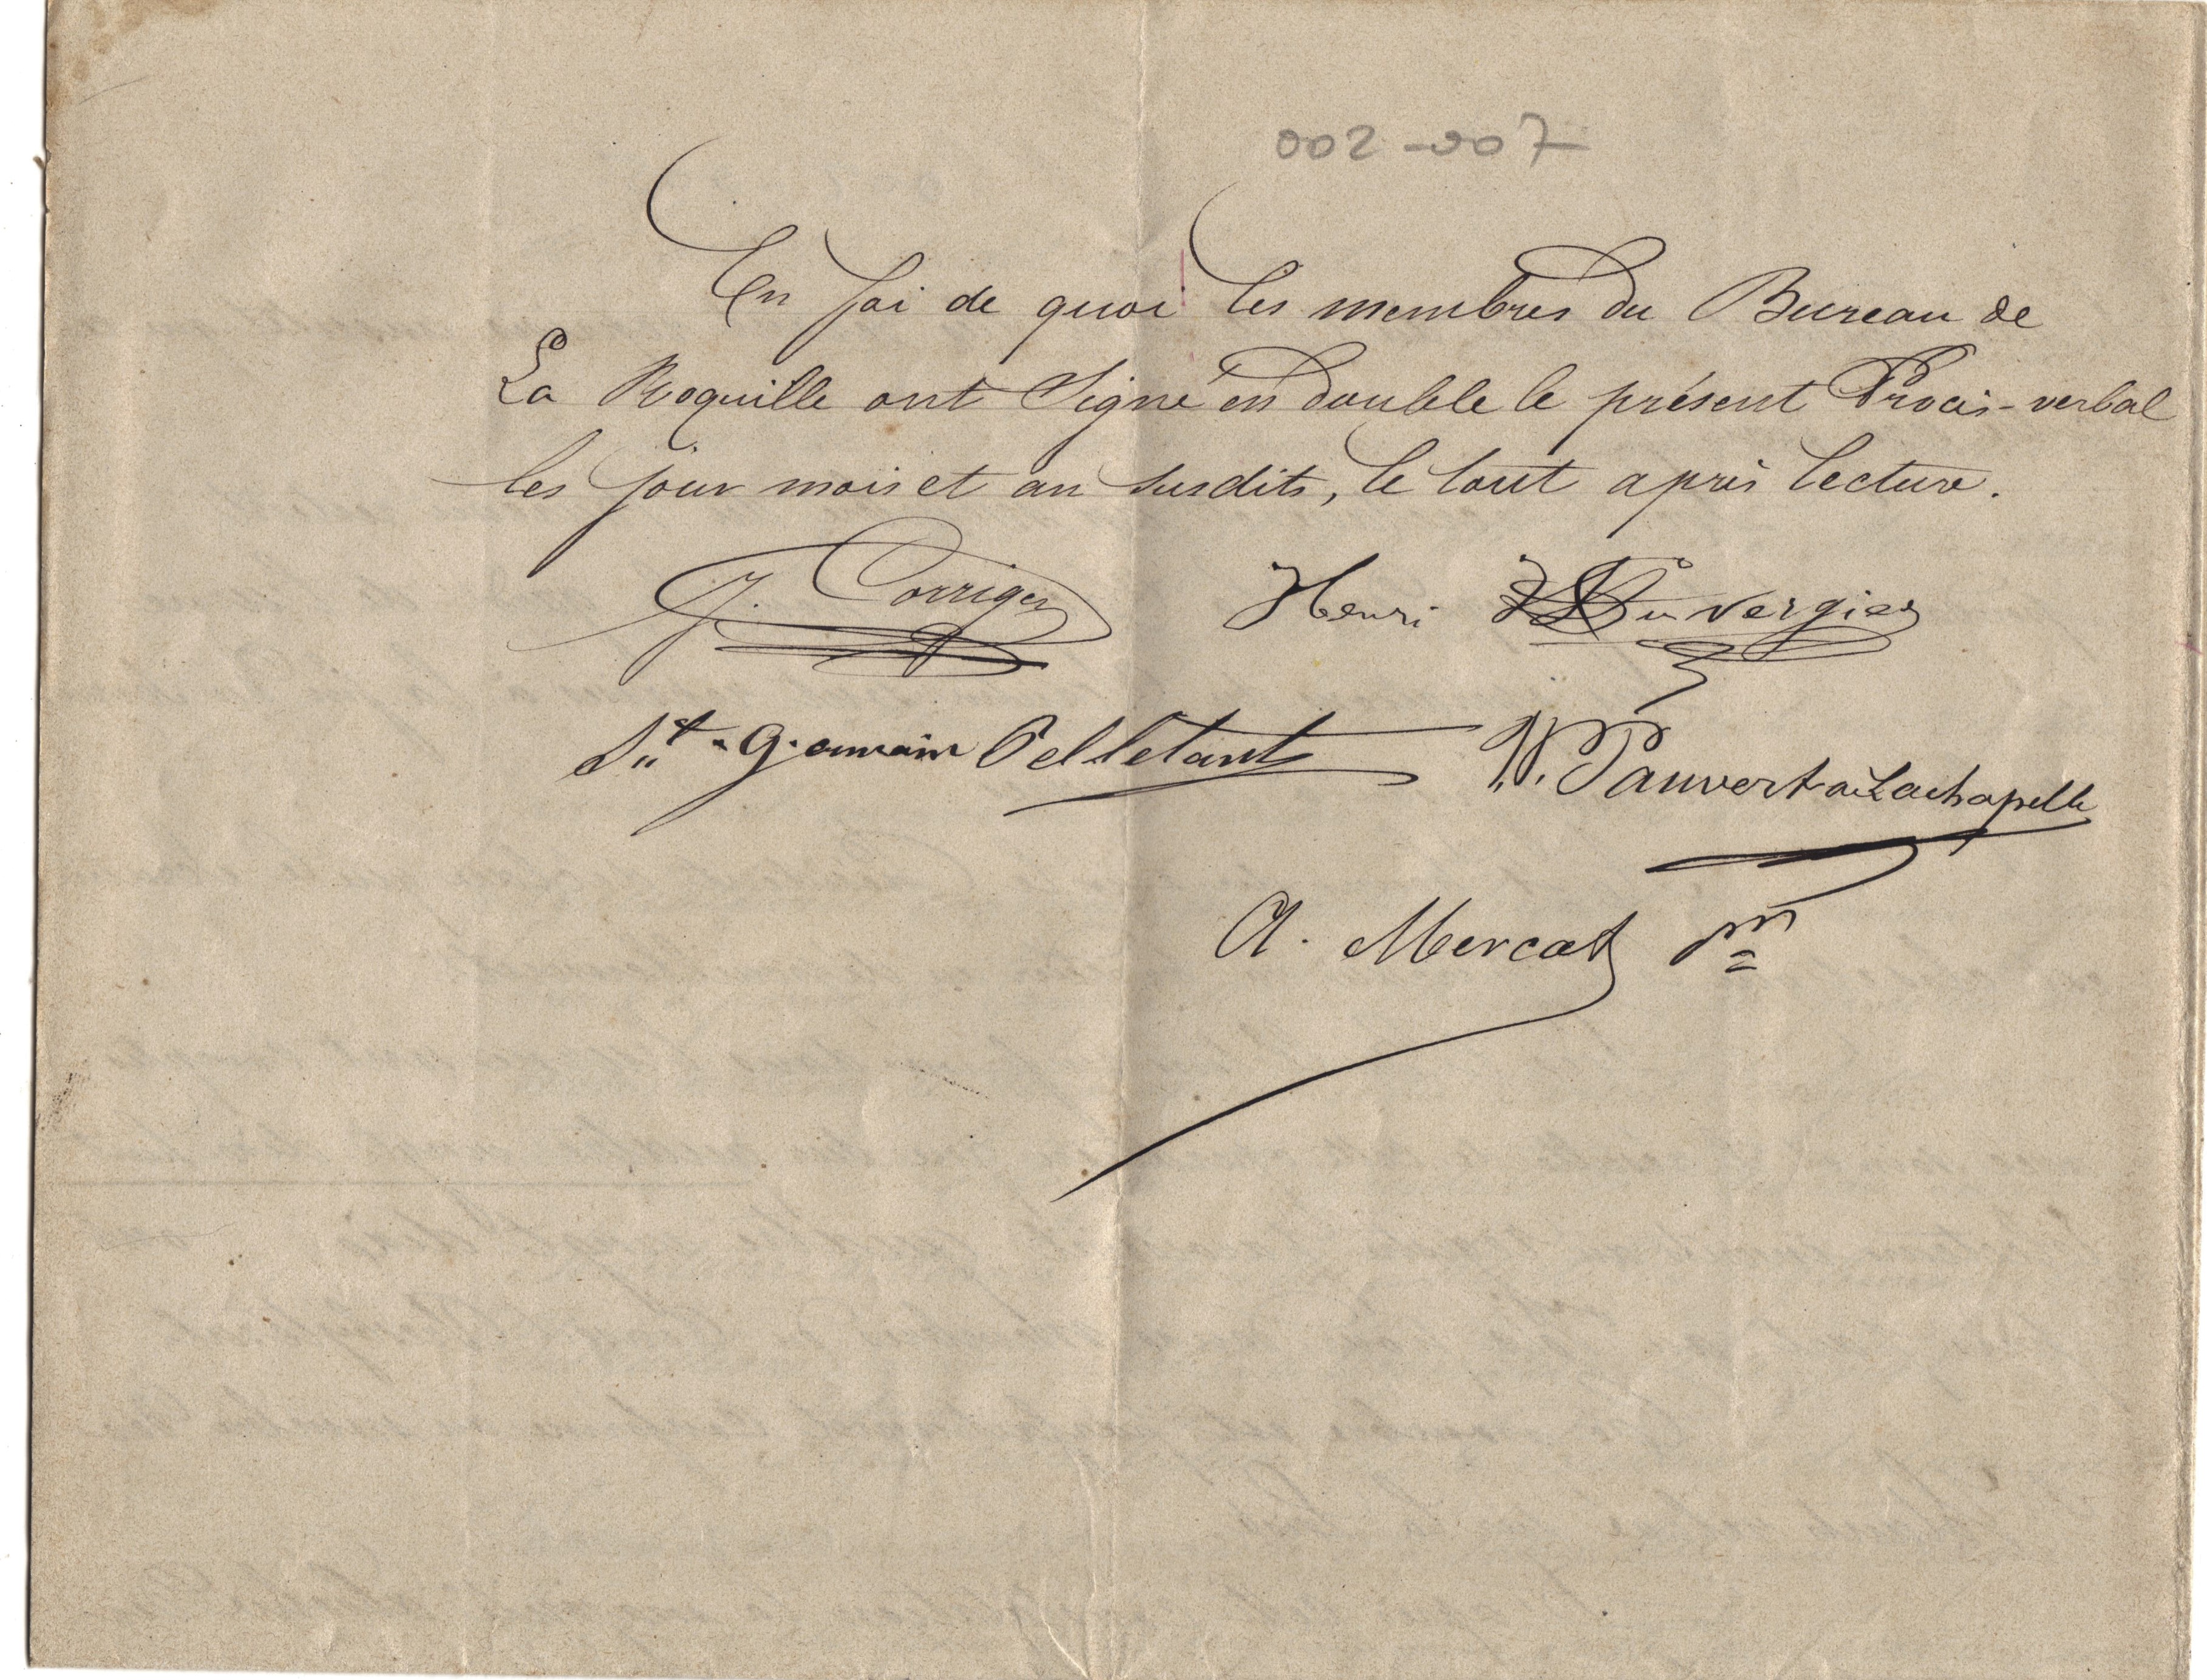 002-007
En foi de quoi les membres du Bureau de
La Roquille ont Signé en double le présent Procès-verbal
les jour mois et an susdits, le tout après lecture.
J. Corriger Henri Duvergier
St-Germain Pelletant P. Pauvert a Lachapelle
A. Mercat